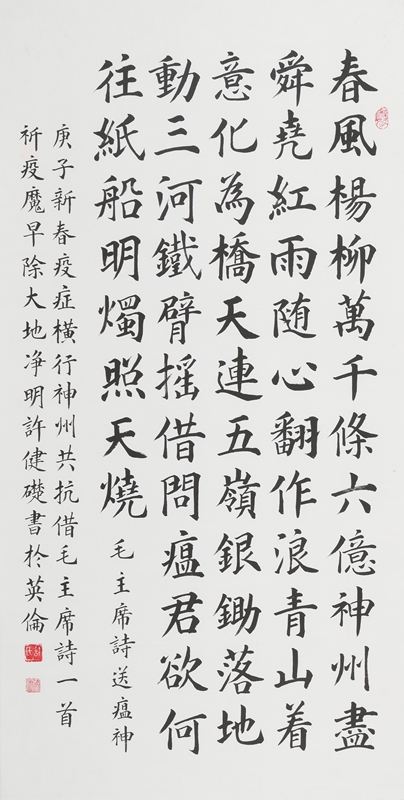 春風楊柳萬千條六億神州盡
舜堯紅雨随心翻作浪青山着
意化為橋天連五嶺銀鋤落地
動三河鐵臂摇借問瘟君欲何
往紙船明燭照天燒 毛主席詩送瘟神
庚子新春疫症橫行神州共抗借毛主席詩一首
祈疫魔早除大地净明許健礎書於英倫